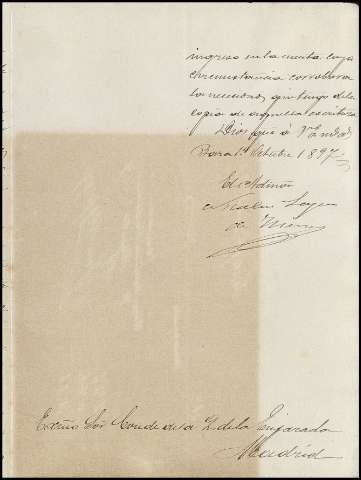 ingreso en la cuenta cuya
circunstancia corrobora
la necesidad q. tengo de la
copia de aquella escritura
Dios gue a V.E. m. a.
1º Octubre 1897
El Admor
de
Exmo Sor Conde de la E. de la Enjarada
Madrid